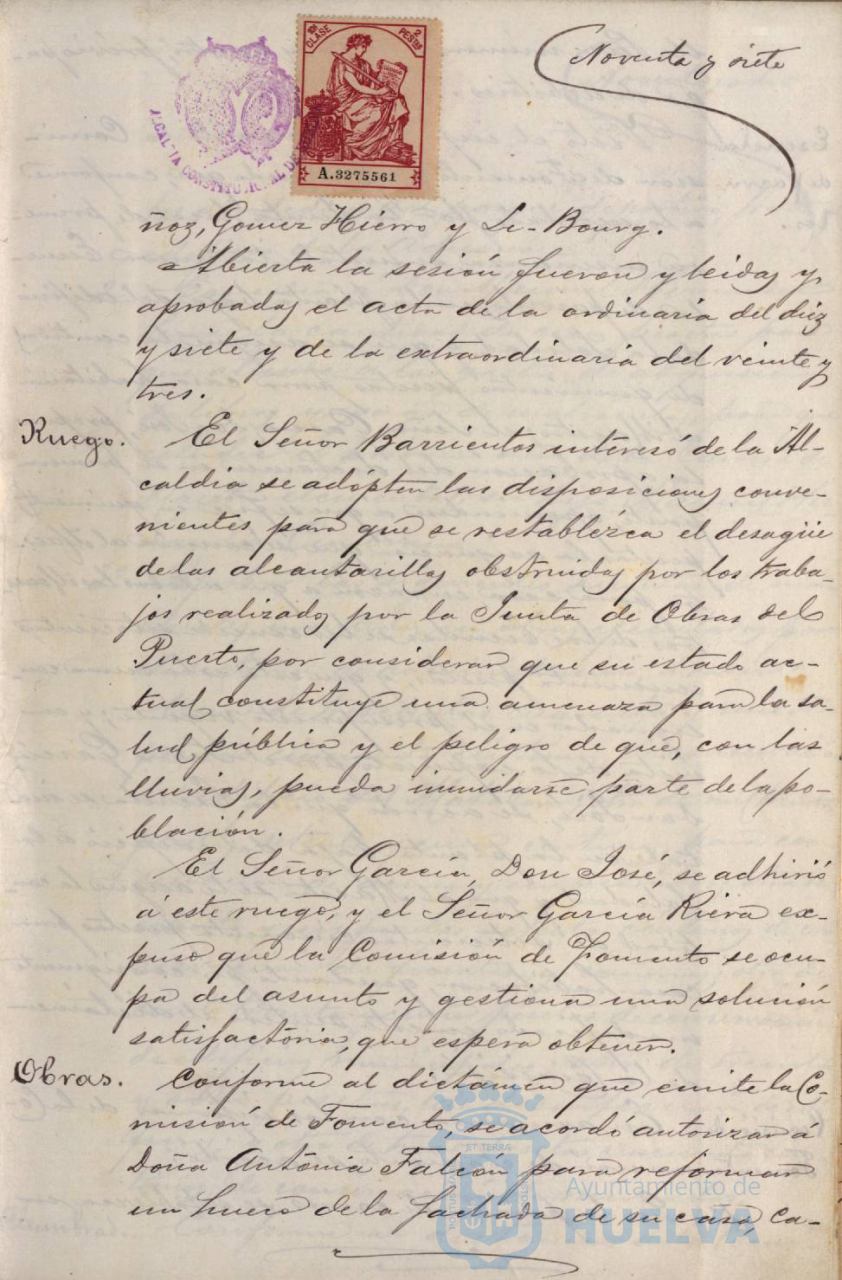 Noventa y siete
10ª CLASE
2 PESETAS
A.3275561
ALCALDIA CONSTITUCIONAL DE
ñoz, Gomez Hierro y Le-Bourg.
Abierta la sesión fueron leidas y
aprobadas el acta de la ordinaria del diez
y siete y de la extraordinaria del veinte y
tres.
Ruego.
El Señor Barrientos interesó de la Al-
caldia se adópten las disposiciones conve-
nientes para que se restablézca el desagüe
de las alcantarillas obstruidas por los traba-
jos realizados por la Junta de Obras del
Puerto, por considerar que su estado ac-
tual constituye una amenaza para la sa-
lud pública y el peligro de que, con las
lluvias, pueda inundarse parte de la po-
blación.
El Señor García, Don José, se adhirió
á este ruego, y el Señor García Riera ex-
puso que la Comisión de Fomento se ocu-
pa del asunto y gestiona una solución
satisfactoria, que espera obtener.
Obras.
Conforme al dictámen que emite la Co-
misión de Fomento, se acordó autorizar á
Doña Antonia Falcón para reformar
un hueco de la fachada de su casa, ca-
Ayuntamiento de
HUELVA